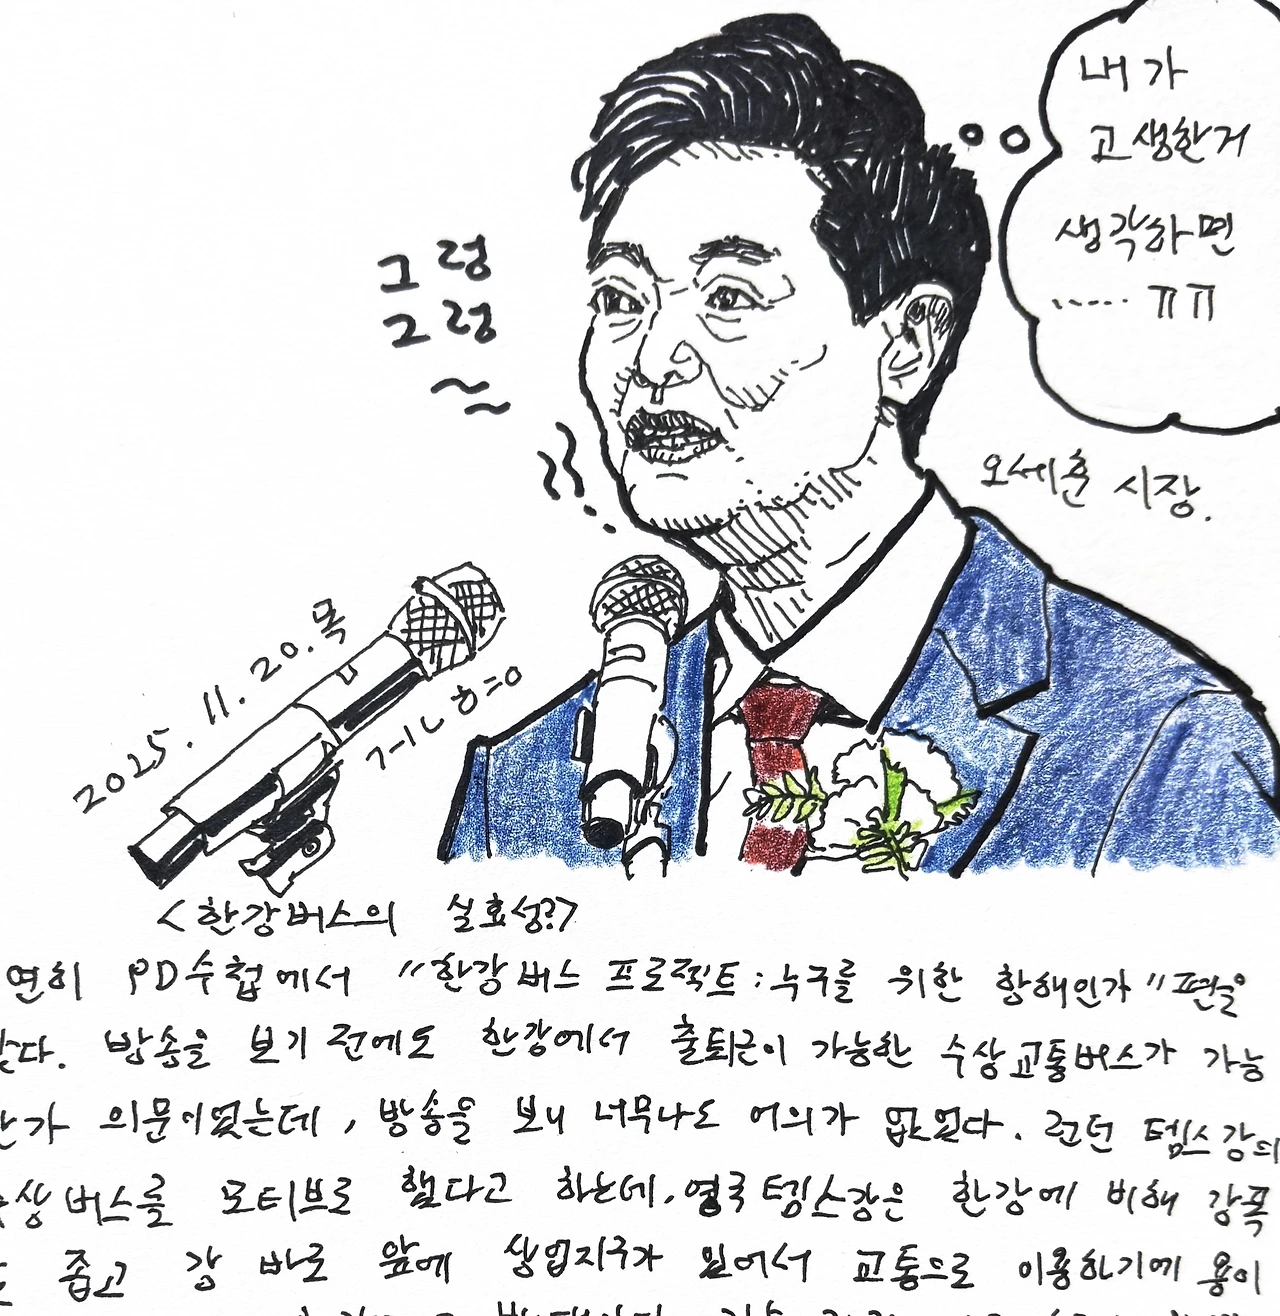 내가
고생한거
생각하면
..... ㅠㅠ
그렁
그렁
오세훈 시장.
2025. 11. 20. 목
7-1L ㅎ=0
<한강버스의 실효성?>
연히 PD수첩에서 "한강버스 프로젝트:누구를 위한 항해인가"편을
다. 방송을 보기 전에도 한강에서 출퇴근이 가능한 수상교통버스가 가능
가 의문이었는데, 방송을 보니 너무나도 어의가 없었다. 런던 템스강의
상버스를 모티브로 했다고 하는데, 영국템스강은 한강에 비해 강폭
좁고 강 바로 앞에 상업지구가 있어서 교통으로 이용하기에 용이